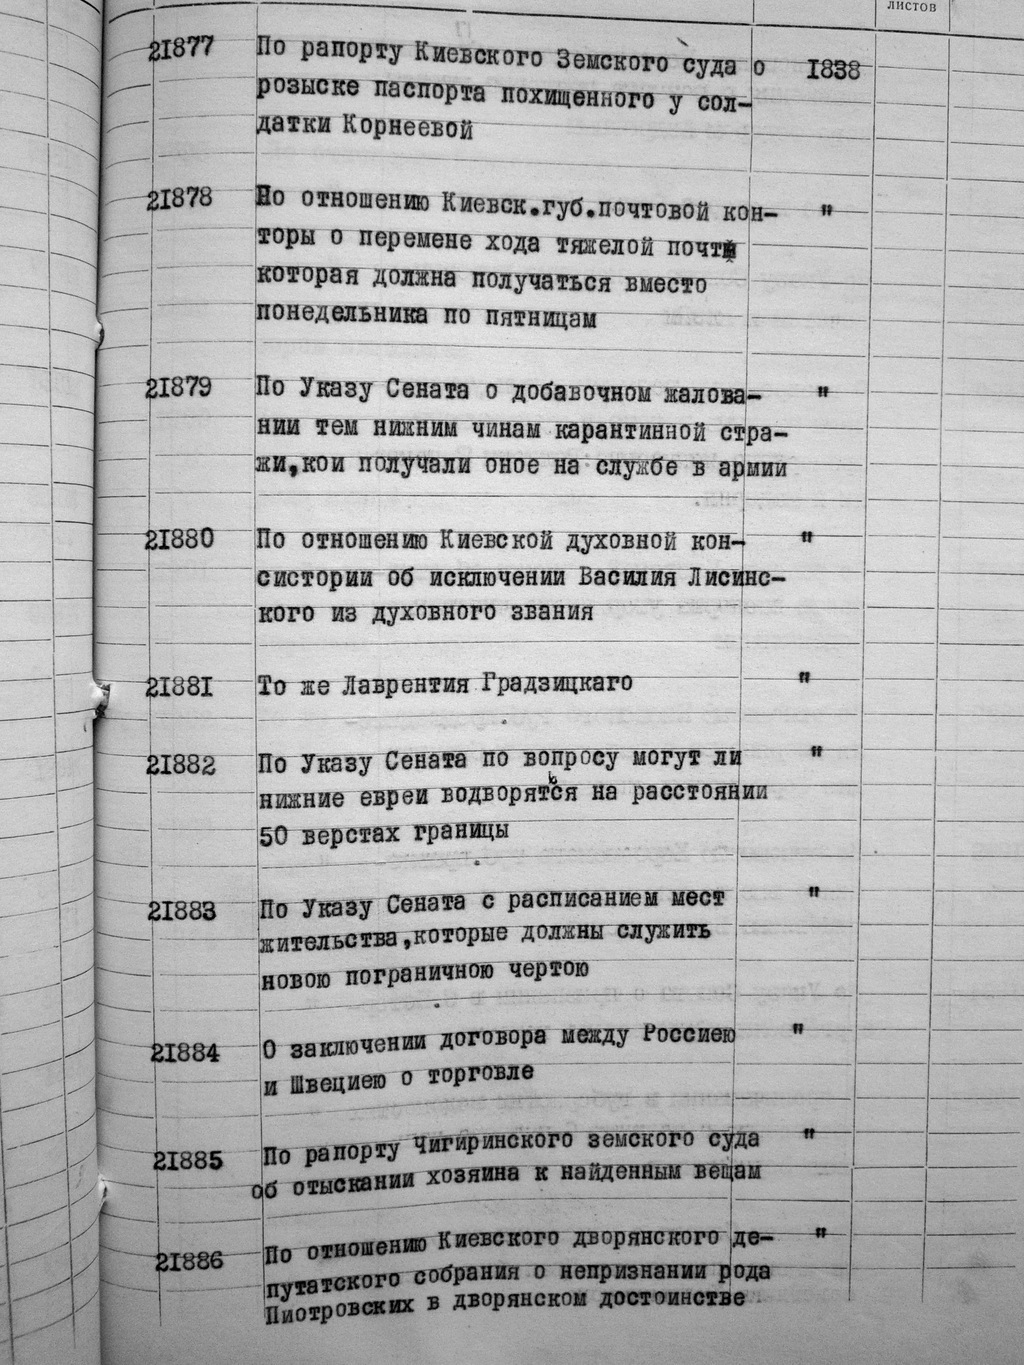 листов
21877 По рапорту Киевского Земского суда о 1838
розыске паспорта похищенного у сол-
датки Корнеевой
21878 По отношению Киевск.губ.почтовой кон- "
торы о перемене хода тяжелой почты
которая должна получаться вместо
понедельника по пятницам
21879 По Указу Сената о добавочном жалова- "
нии тем нижним чинам карантинной стра-
жи,кои получали оное на службе в армии
21880 По отношению Киевской духовной кон- "
систории об исключении Василия Лисинс-
кого из духовного звания
21881 То же Лаврентия Градзицкаго "
21882 По Указу Сената по вопросу могут ли "
нижние евреи водворятьcя на расстоянии
50 верстах границы
21883 По Указу Сената с расписанием мест "
жительства,которые должны служить
новою пограничною чертою
21884 О заключении договора между Россиею "
и Швециею о торговле
21885 По рапорту Чигиринского земского суда "
об отыскании хозяина к найденным вещам
21886 По отношению Киевского дворянского де- "
путатского собрания о непризнании рода
Пиотровских в дворянском достоинстве